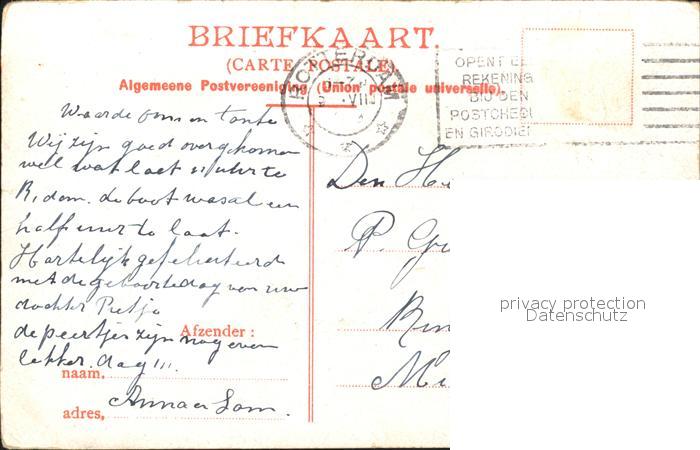 BRIEFKAART.
(CARTE POSTALE)
Algemeene Postvereeniging (Union postale universelle).
ROTTERDAM
VIII
OPENT
REKENING
BIJ DEN
POSTCHEQ
EN GIRODIE
Waarde oom en tante
Wij zijn goed overgekomen
wel wat laet 11 uhr te
R,dam. de boot was al een
half uur te laat.
Hartelijk gefeliciteerd
met de geboortedag van uw
dochter Pietje
de peertjes zijn nog even
lekker. dag!!!
Anna en
Afzender:
naam,
adres,
Den
P.
privacy protection
Datenschutz